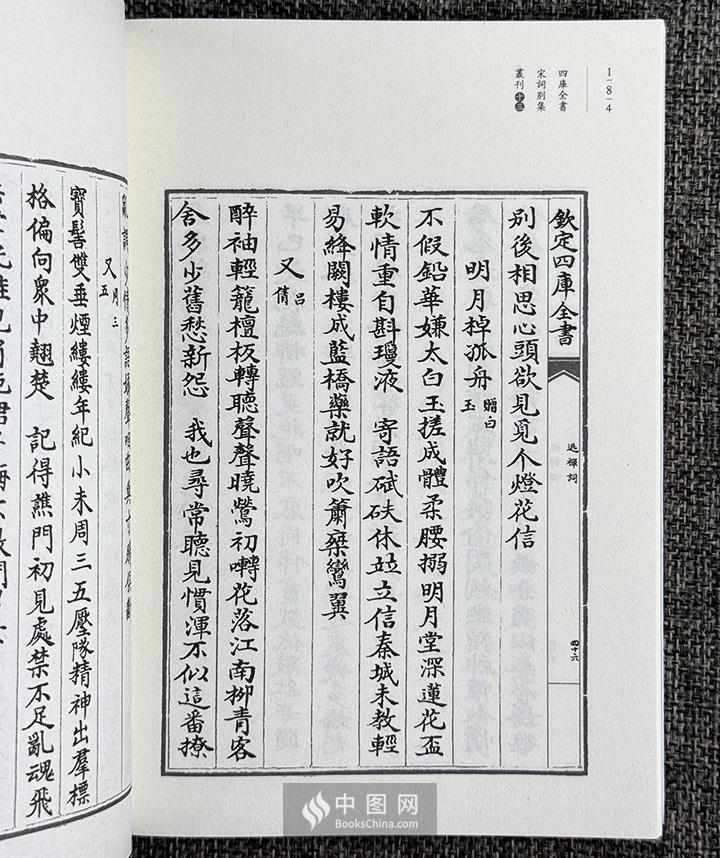 1-8-4
四庫全書
宋詞別集
叢刊 十三
欽定四庫全書
逃禪詞
四十六
別後相思心頭欲見覓个燈花信
明月棹孤舟 贈白
玉
不假鉛華嫌太白玉搓成體柔腰搦明月堂深蓮花盃
軟情重自斟瓊液 寄語碔砆休竝立信秦城未教輕
易絳闕樓成藍橋藥就好吹簫乘鸞翼
又 呂
倩
醉袖輕籠檀板轉聽聲聲曉鶯初囀花落江南栁青客
舍多少舊愁新怨 我也尋常聽見慣渾不似這番撩
又 周三
五
寳髻雙垂煙縷縷年紀小未周三五壓隊精神出羣標
格偏向衆中翹楚 記得譙門初見處禁不足亂魂飛
中图网
BooksChina.com